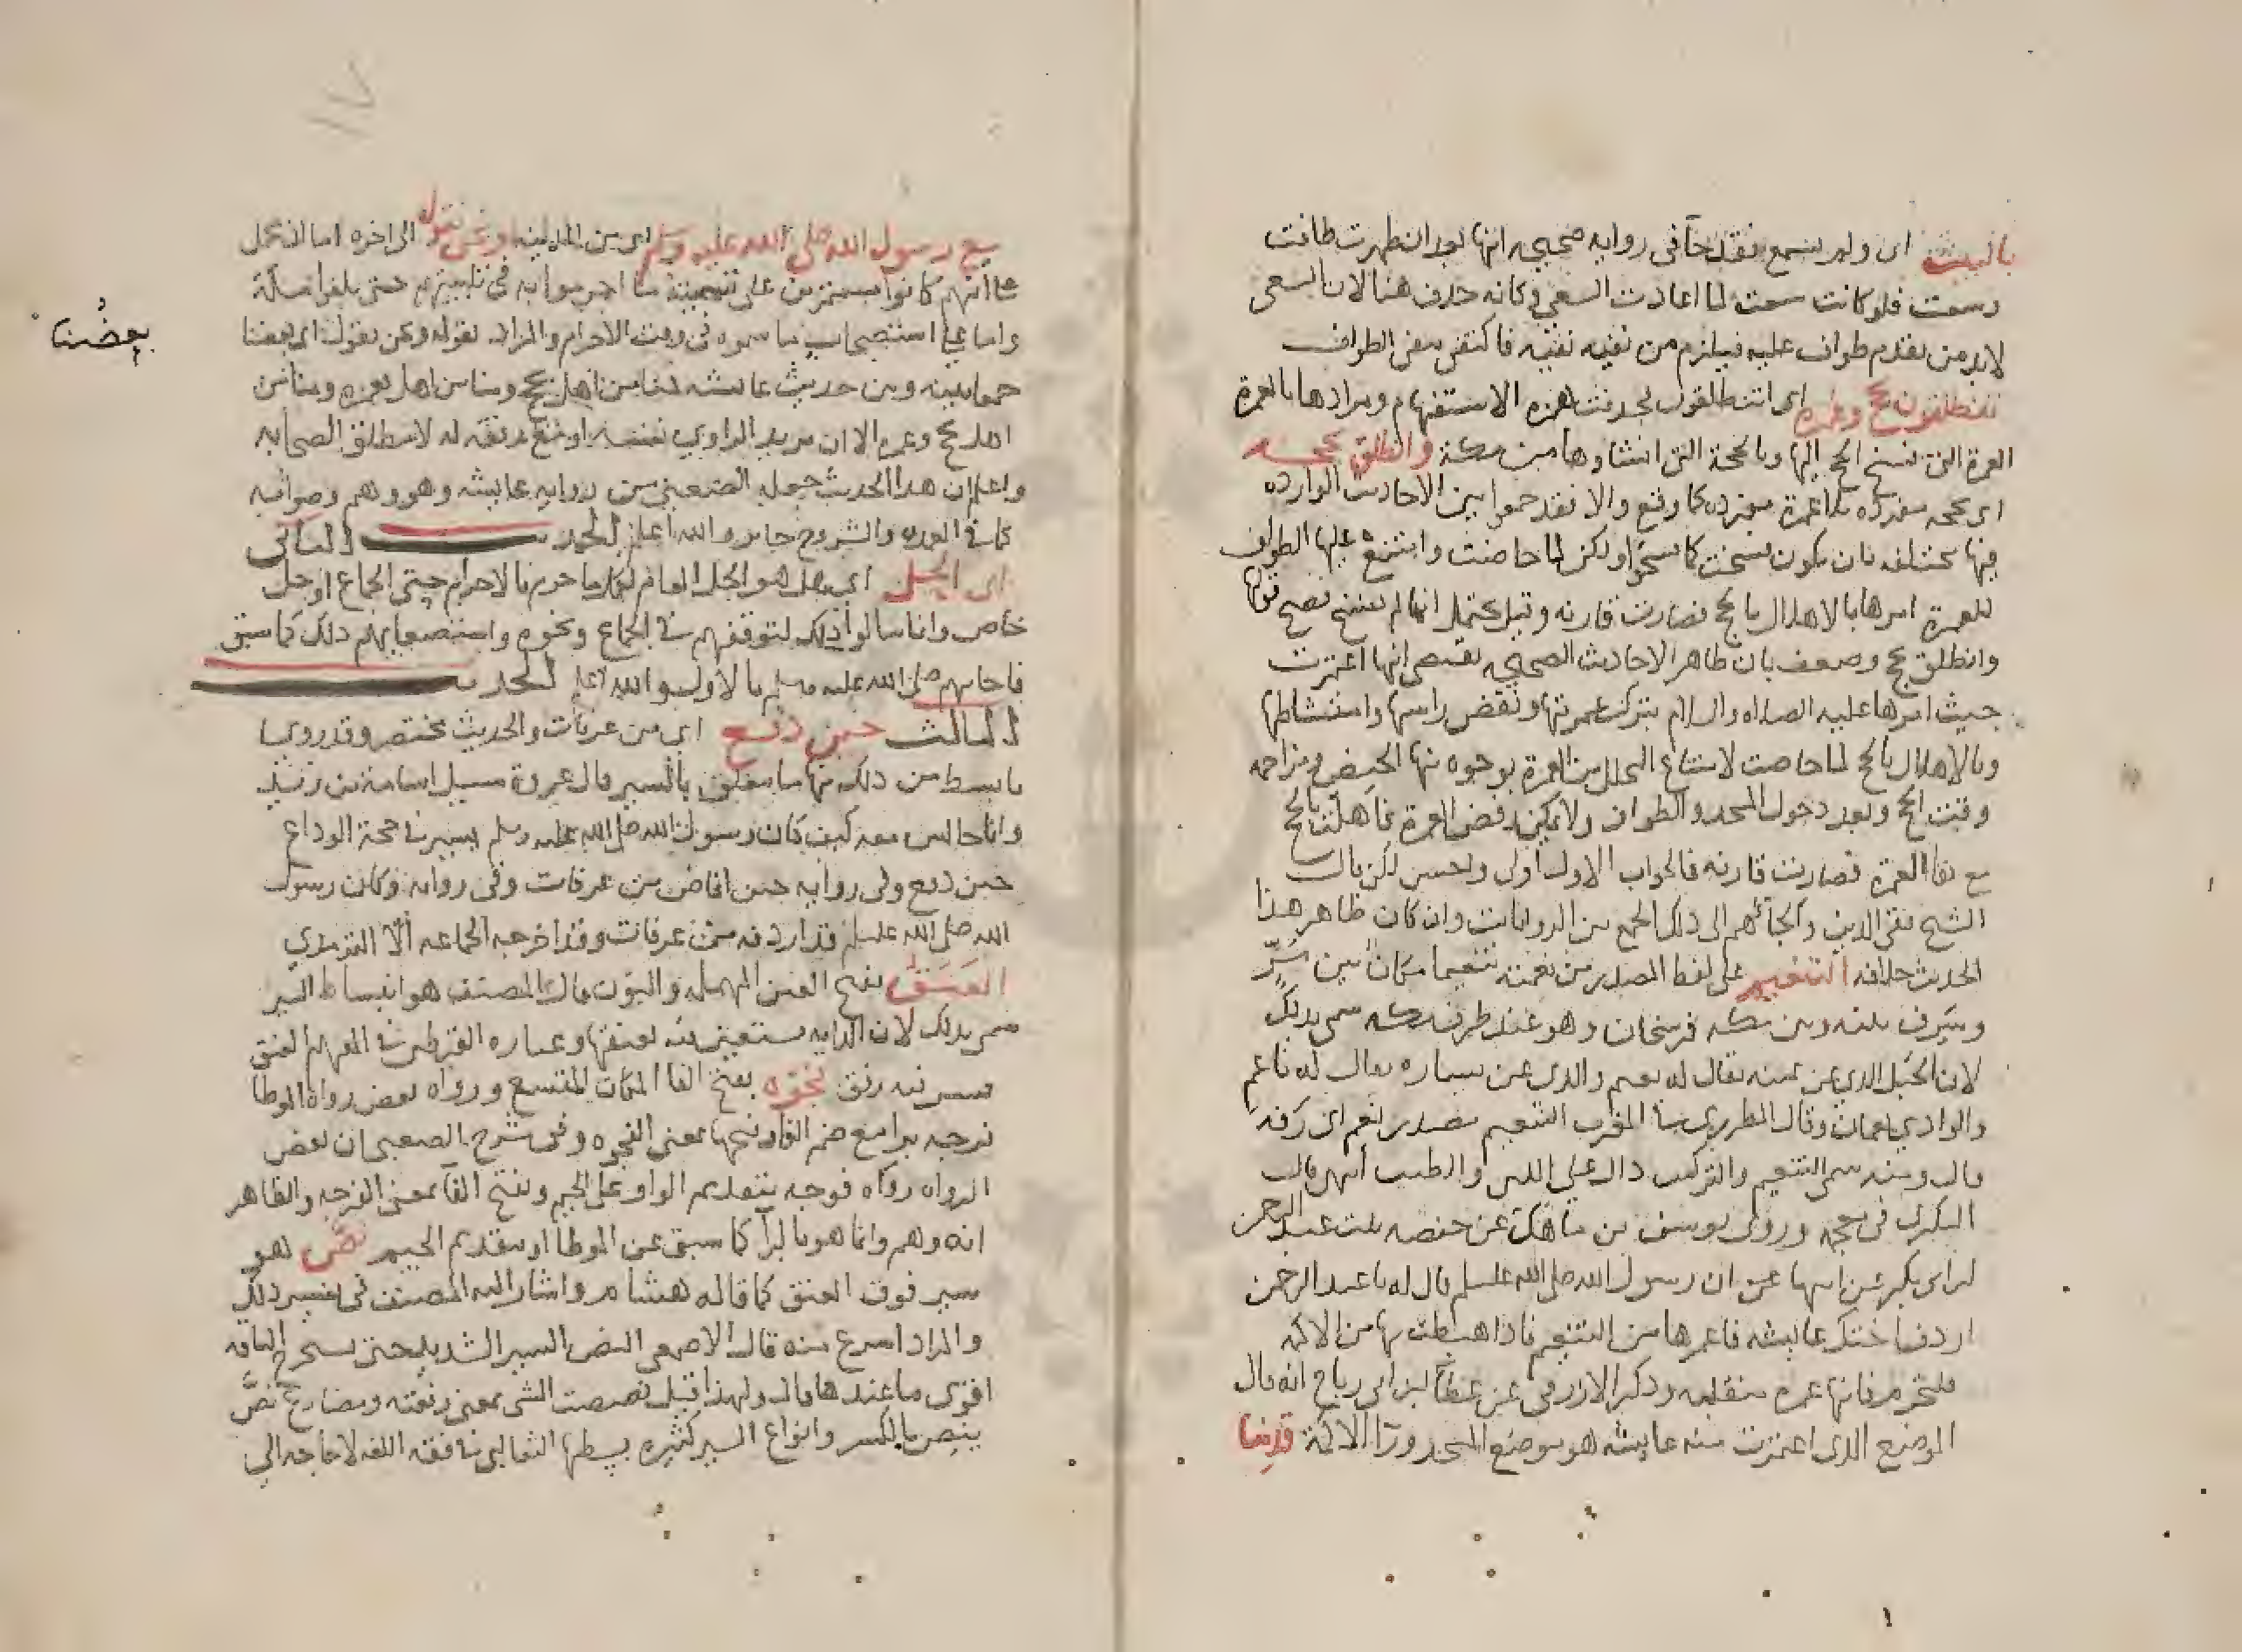 بالبيت اى ولم تسع فقد جآ فى رواية صحيحه انها بعد ان طهرت طافت
وسعت فلو كانت سعت لما اعادت السعى وكانه حذف هنا لان السعى
لابد من تقدم طواف عليه فيلزم من نفيه نفيه فاكتفى بنفى الطواف
تنطلقون بحج وعمرة اى اتنطلقون بحذف همزه الاستفهام ومرادها بالعمرة
العمرة التى فسخ الحج اليها وبالحجة التى انشاوها من مكة وانطلق بحجه
اى بحجه مفرده بلا عمرة مفرده كما وقع والا فقد جمعوا بين الاحاديث الوارده
فيها مختلفه بان يكون فسخت كما فسخوا ولكن لما حاضت وامتنع عليها الطواف
للعمرة امرها بالاهلال بالحج فصارت قارنه وقيل يحتمل انها لم تفسخ فصح قولها
وانطلق بحج وضعف بان ظاهر الاحاديث الصحيحه يقتضى انها اعتمرت
حيث امرها عليه الصلاه والسلام بترك عمرتها ونقض راسها وامتشاطها
وبالاهلال بالحج لما حاضت لامتناع التحلل من العمرة بوجوه منها الحيض ومزاحمه
وقت الحج وبعد دخول المسجد والطواف ولا يمكن رفض العمرة فاهلت بالحج
مع بقا العمرة فصارت قارنه فالجواب الاول اولى واحسن لكن قال
الشيخ تقى الدين والجأهم الى ذلك الجمع بين الروايات وان كان ظاهر هذا
الحديث خلافه التنعيم على لفظ المصدر من نعمته تنعيما مكان بين مَرٍّ
وسَرِف بينه وبين مكه فرسخان وهو عند طرف مكه سمى بذلك
لان الجبل الذى عن يمينه يقال له نعيم والذى عن يساره يقال له ناعم
والوادى نعمان وقال المطرزى فى المغرب التنعيم مصدر نعم اى رفه
قال ومنه سمى التنعيم والتركيب دال على اللين والطيب انتهى قال
البكرى فى معجمه وروى يوسف بن ماهك عن حفصه بنت عبد الرحمن
ابن ابى بكر عن ابيها ان رسول الله صلى الله عليه وسلم قال له يا عبد الرحمن
اردف اختك عايشه فاعمرها من التنعيم فاذا هبطت بها من الاكمه
فلتحرم فانها عمره متقبله وذكر الازرقى عن عطآ ابن ابى رباح انه قال
الموضع الذى اعتمرت منه عايشه هو موضع المسجد ورآ الاكمة قدمنا
مع رسول الله صلى الله عليه وسلم اى من المدينه ونحن نقول الى اخره اما ان يحمل
على انهم كانوا مستمرين على تسمية ما احرموا به فى تلبيتهم حتى بلغوا مكة
واما على استصحاب ما سموه فى وقت الاحرام والمراد بقوله ونحن نقول اى بعضنا
بعضنا
جمعا بينه وبين حديث عايشه فمنا من اهل بحج ومنا من اهل بعمره ومنا من
اهل بحج وعمره الا ان يريد الراوى نفسه او مع رفقه له لا مطلق الصحابه
واعلم ان هذا الحديث جعله الصعبى من روايه عايشه وهو وهم وصوابه
كما فى العمده والشروح جابر والله اعلم الحديث الثانى
اى الحل اى هل هو الحل العام لكل ما حرم بالاحرام حتى الجماع او حل
خاص وانما سالوا ذلك لتوقفهم فى الجماع ونحوه واستصعابهم ذلك كما سبق
فاجابهم صلى الله عليه وسلم بالاول والله اعلم الحديث
الثالث حين دفع اى من عرفات والحديث مختصر وقد روى
بابسط من ذلك منها ما يتعلق بالسير قال عروة سيل اسامة بن زيد
وانا جالس معه كيف كان رسول الله صلى الله عليه وسلم يسير فى حجة الوداع
حين دفع وفى روايه حين افاض من عرفات وفى روايه وكان رسول
الله صلى الله عليه وسلم قد اردفه من عرفات وقد اخرجه الجماعه الّا الترمذى
العَنَق بفتح العين المهمله والنون قال المصنف هو انبساط السير
سمى بذلك لان الدابه تستعين فيه بعنقها وعباره القرطبى فى المفهم العنق
سير فيه رفق فجوه بفتح الفا المكان المتسع ورواه بعض رواة الموطا
فرجه برا مع ضم الفا وفتحها بمعنى الفجوه وفى شرح الصعبى ان بعض
الرواه رواه فوجه بتقديم الواو على الجيم وبفتح الفآ بمعنى الفرجه والظاهر
انه وهم وانما هو بالرآ كما سبق عن الموطا او بتقديم الجيم نصّ هو
سير فوق العنق كما قاله هشام واشار اليه المصنف فى تفسير ذلك
والمراد اسرع منه قال الاصمعى النص السير الشديد حتى تستخرج الناقه
اقوى ما عندها قال ولهذا قيل نصصت الشى بمعنى رفعته ومضارع نصّ
ينِص بالكسر وانواع السير كثيره بسطها الثعالبى فى فقه اللغه لا حاجه الى